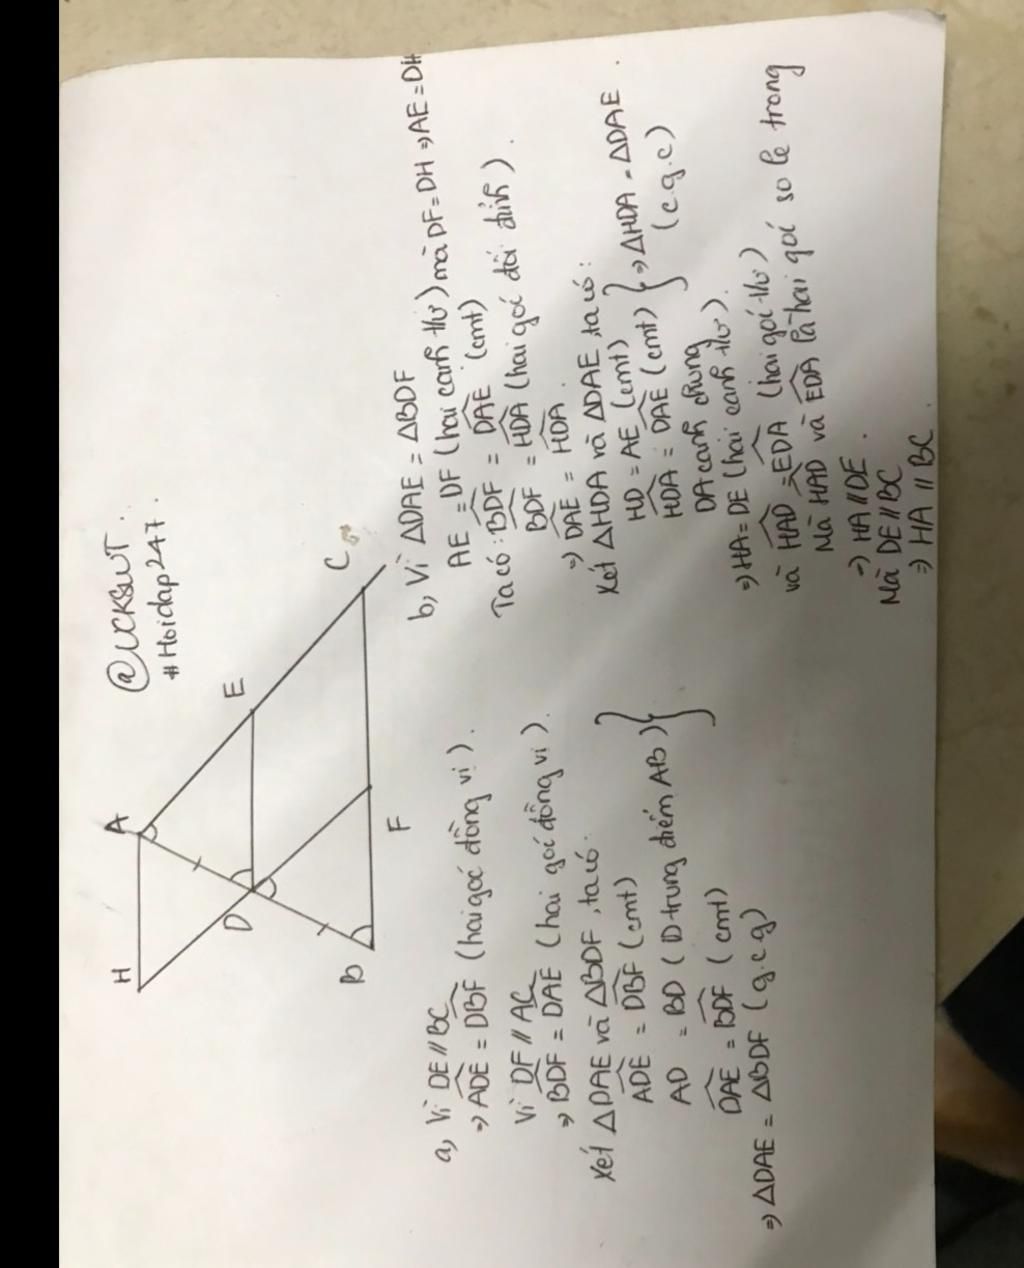 @UCKSWT.
#Hoidap247.
H
A
E
D
C
B
F
a, Vì DE//BC
⇒ ADE = DBF (hai góc đồng vị).
Vì DF // AC
⇒ BDF = DAE (hai goí đồng vị).
Xét △DAE và △BDF, ta có:
ADE = DBF (cmt)
AD = BD (D trung điểm AB)
DAE = BDF (cmt)
⇒ △DAE = △BDF (g.c.g)
b, Vì △DAE = △BDF
AE = DF (hai cạnh t/ư) mà DF = DH ⇒ AE = DH
Ta có: BDF = DAE (cmt)
BDF = HDA (hai goí đối đỉnh).
⇒ DAE = HDA.
Xét △HDA và △DAE, ta có:
HD = AE (cmt)
HDA = DAE (cmt) } ⇒ △HDA = △DAE.
DA cạnh chung (c.g.c)
⇒ HA = DE (hai cạnh t/ư).
và HAD = EDA (hai goí t/ư)
Mà HAD và EDA là hai goí so le trong
⇒ HA // DE.
Mà DE // BC
⇒ HA // BC.